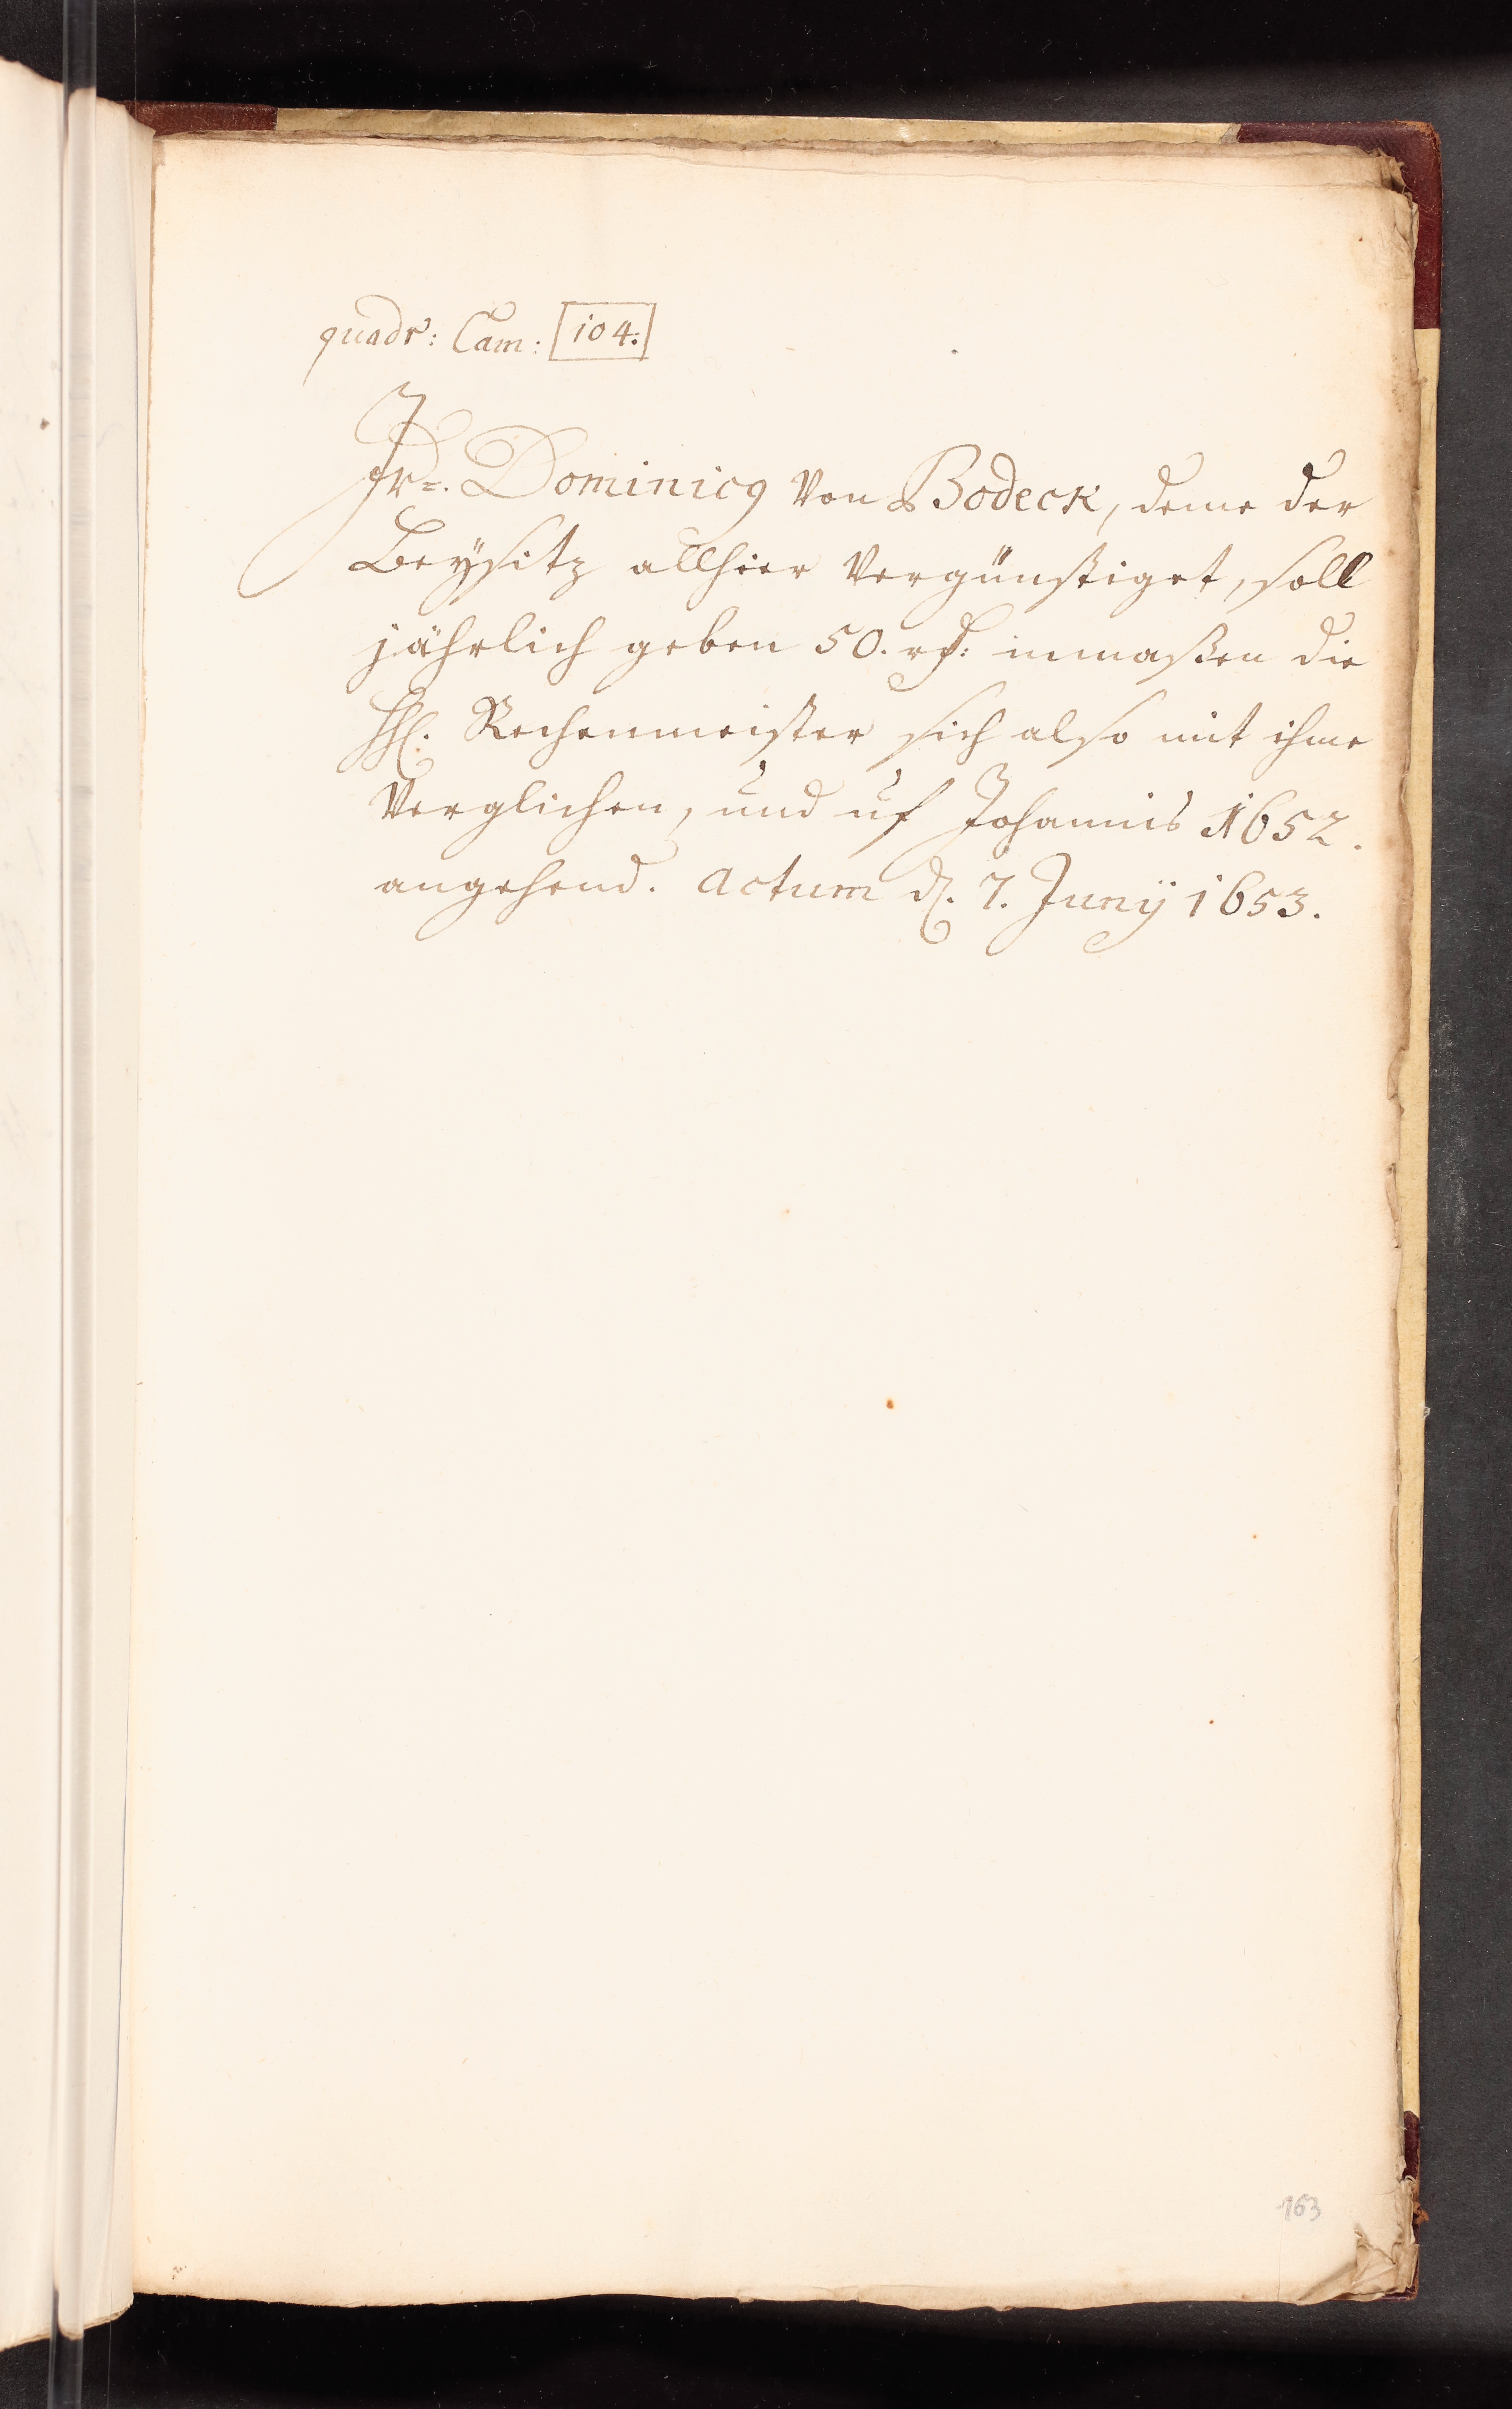 quadr: Cam: 104:
Jr=. Dominicg Von Bodeck, deme der
Beÿsitz allhier Vergünstiget, soll
jährlich geben 50. rf: inmaßen die
HH. Rechenmeister sich also mit ihme
Verglichen, und uf Johannis 1652.
angehend. Actum d. 7. Junÿ 1653.
163